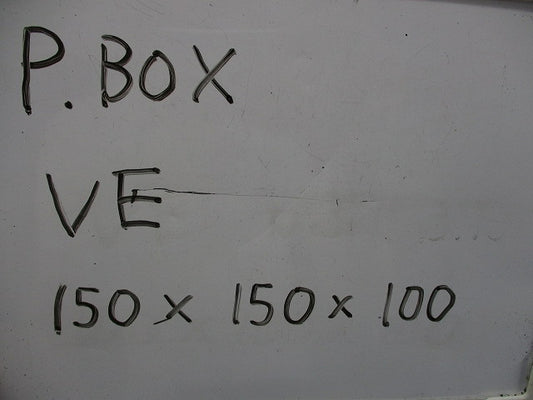 P.BOX
VE
150 x 150 x 100